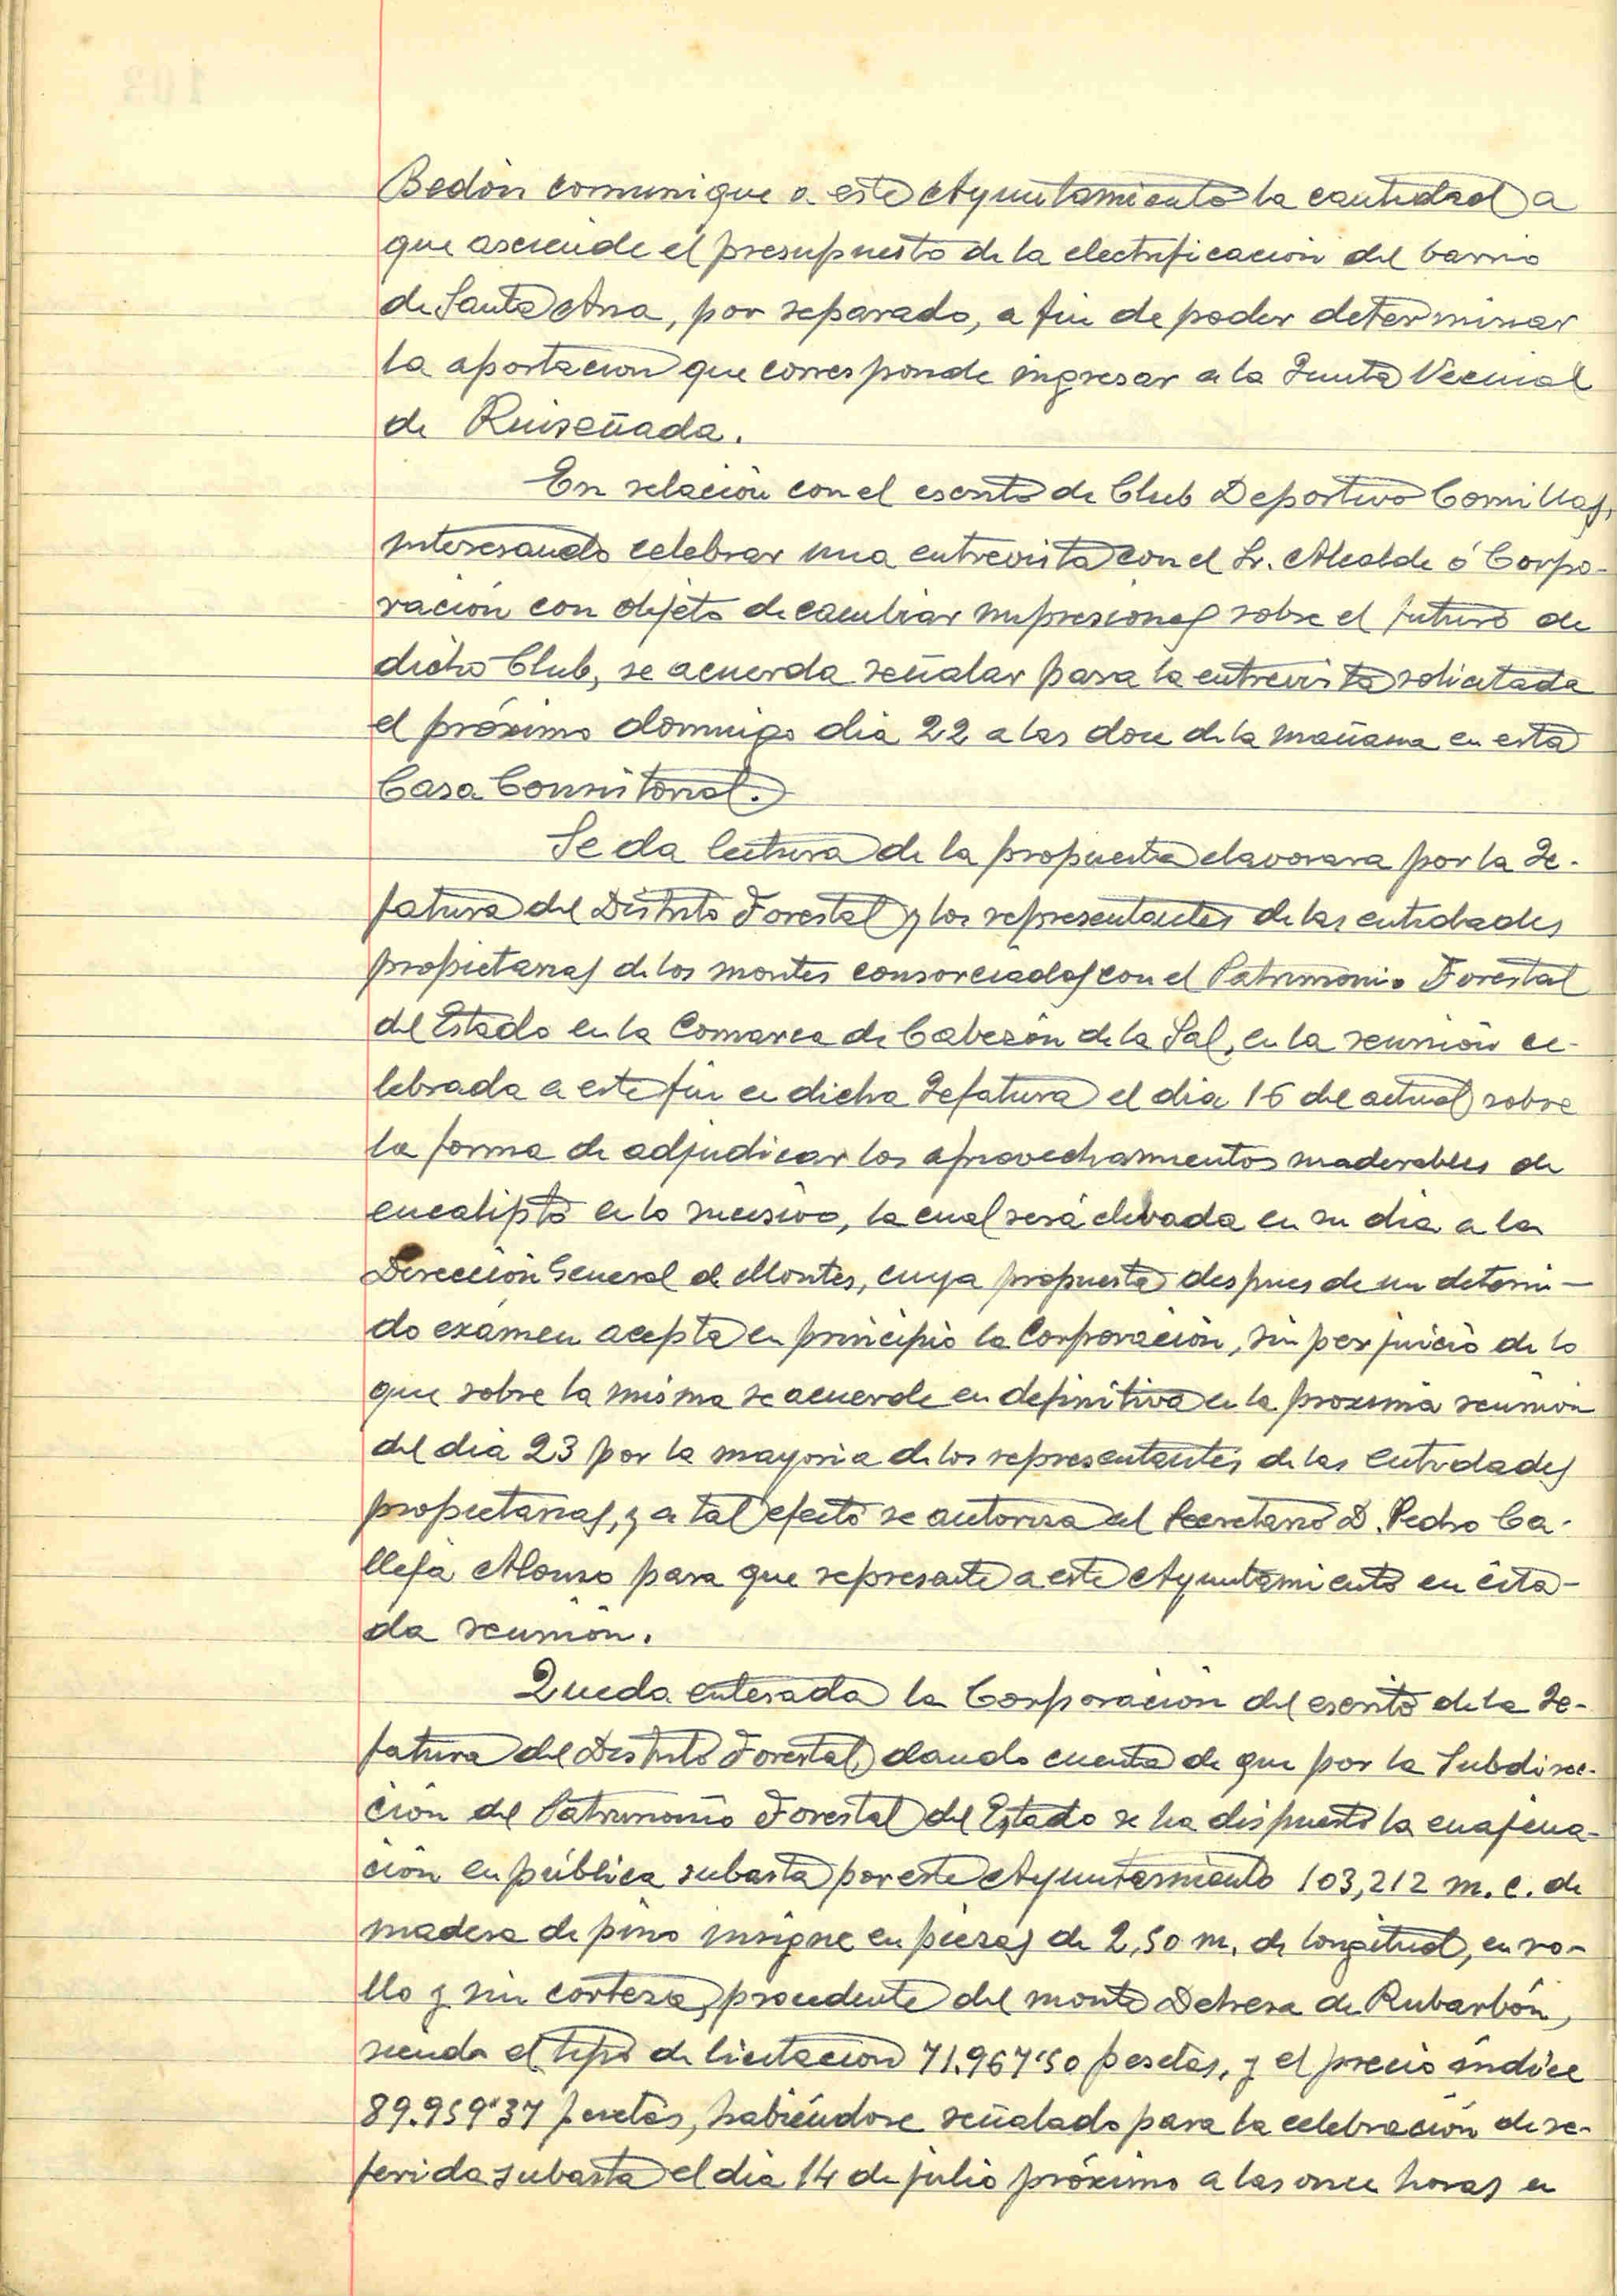 Bedón comunique a este Ayuntamiento la cantidad a
que asciende el presupuesto de la electrificación del barrio
de Santa Ana, por separado, a fin de poder determinar
la aportación que corresponde ingresar a la Junta Vecinal
de Ruiseñada.
En relación con el escrito de Club Deportivo Comillas,
interesando celebrar una entrevista con el Sr. Alcalde ó Corpo-
ración con objeto de cambiar impresiones sobre el futuro de
dicho Club, se acuerda señalar para la entrevista solicitada
el próximo domingo dia 22 a las doce de la mañana en esta
Casa Consistorial.
Se da lectura de la propuesta elavorara por la Je-
fatura del Distrito Forestal y los representantes de las entidades
propietarias de los montes consorciados con el Patrimonio Forestal
del Estado en la Comarca de Cabezón de la Sal, en la reunión ce-
lebrada a este fin en dicha Jefatura el dia 16 del actual sobre
la forma de adjudicar los aprovechamientos maderables de
eucalipto en lo sucesivo, la cual será elevada en su dia a la
Dirección General de Montes, cuya propuesta despues de un deteni-
do exámen acepta en principio la Corporación, sin perjuicio de lo
que sobre la misma se acuerde en definitiva en la proxima reunion
del dia 23 por la mayoria de los representantes de las Entidades
propietarias, y a tal efecto se autoriza al Secretario D. Pedro Ca-
lleja Alonso para que represente a este Ayuntamiento en cita-
da reunión.
Queda enterada la Corporación del escrito de la Je-
fatura del Distrito Forestal, dando cuenta de que por la Subdirec-
ción del Patrimonio Forestal del Estado se ha dispuesto la enajena-
ción en pública subasta por este Ayuntamiento 103,212 m. c. de
madera de pino insigne en piezas de 2,50 m. de longitud, en ro-
llo y sin corteza, procedente del monte Dehesa de Rubarbón,
siendo el tipo de licitación 71.967'50 pesetas, y el precio indice
89.959'37 pesetas, habiéndose señalado para la celebración de re-
ferida subasta el dia 14 de julio próximo a las once horas en